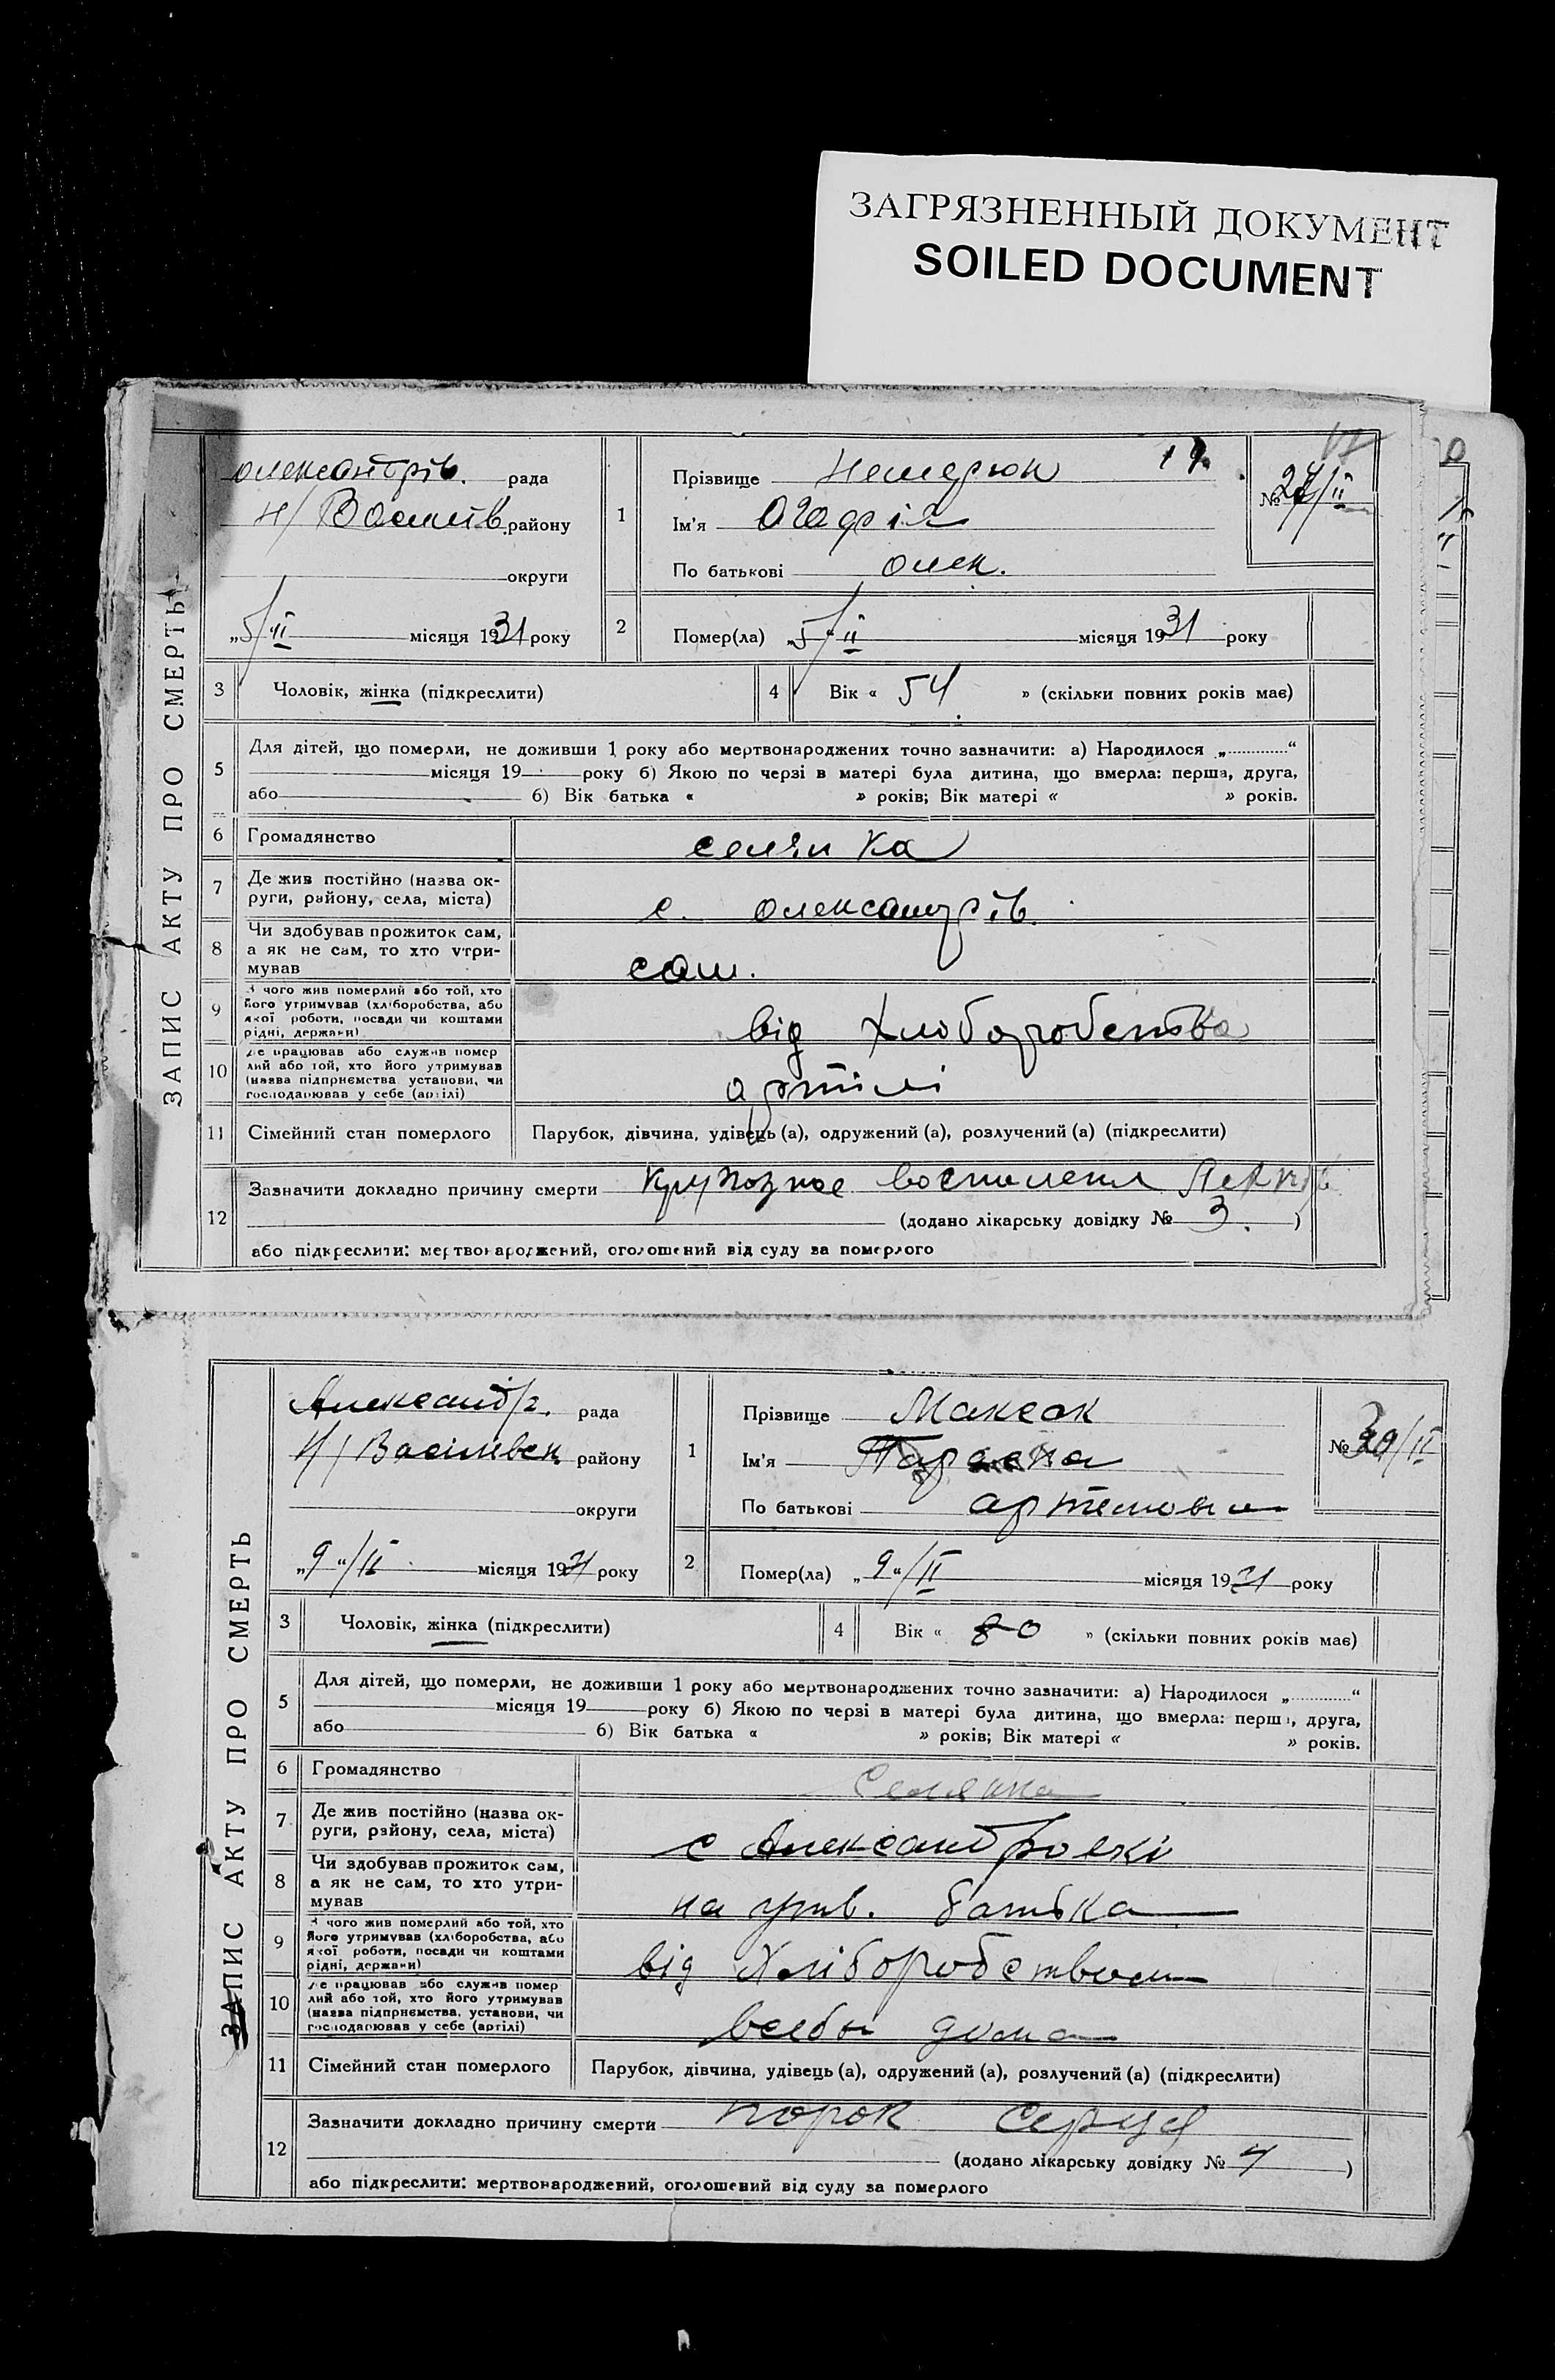 ЗАГРЯЗНЕННЫЙ ДОКУМЕНТ
SOILED DOCUMENT
ЗАПИС АКТУ ПРО СМЕРТЬ
олександрів. рада
Н/Василів. району
округи
„5/II місяця 1931 року
1
Прізвище Нешерюк 19.
Ім'я Агафія
По батькові олек.
№ /II
2
Помер(ла) „5/"II місяця 1931 року
3 Чоловік, жінка (підкреслити)
4 Вік « 54. » (скільки повних років має)
5 Для дітей, що померли, не доживши 1 року або мертвонароджених точно зазначити: а) Народилося „ “
місяця 19 року б) Якою по черзі в матері була дитина, що вмерла: перша, друга,
або б) Вік батька « » років; Вік матері « » років.
6 Громадянство селянка
7 Де жив постійно (назва ок-
руги, району, села, міста)
с. олександрів.
8 Чи здобував прожиток сам,
а як не сам, то хто утри-
мував
сам.
9 З чого жив померлий або той, хто
його утримував (хліборобства, або
якої роботи, посади чи коштами
рідні, держави)
від хлоборобства
10 Де працював або служив помер
лий або той, хто його утримував
(назва підприємства, установи, чи
господарював у себе (артілі)
артілі
11 Сімейний стан померлого Парубок, дівчина, удівець (а), одружений (а), розлучений (а) (підкреслити)
12 Зазначити докладно причину смерти Крупозное воспаления
(додано лікарську довідку № 3. )
або підкреслити: мертвонароджений, оголошений від суду за померлого
ЗАПИС АКТУ ПРО СМЕРТЬ
Александр. рада
Н/Васілівск. району
округи
„9"/II місяця 1931 року
1
Прізвище Максак
Ім'я Параска
По батькові артемовна
№ /II
2
Помер(ла) „9"/II місяця 1931 року
3 Чоловік, жінка (підкреслити)
4 Вік « 80 » (скільки повних років має)
5 Для дітей, що померли, не доживши 1 року або мертвонароджених точно зазначити: а) Народилося „ “
місяця 19 року б) Якою по черзі в матері була дитина, що вмерла: перша, друга,
або б) Вік батька « » років; Вік матері « » років.
6 Громадянство Селянка
7 Де жив постійно (назва ок-
руги, району, села, міста)
с Александровкі
8 Чи здобував прожиток сам,
а як не сам, то хто утри-
мував
на утв. батька
9 З чого жив померлий або той, хто
його утримував (хліборобства, або
якої роботи, посади чи коштами
рідні, держави)
від Хліборобством
10 Де працював або служив помер
лий або той, хто його утримував
(назва підприємства, установи, чи
господарював у себе (артілі)
дома
11 Сімейний стан померлого Парубок, дівчина, удівець (а), одружений (а), розлучений (а) (підкреслити)
12 Зазначити докладно причину смерти порок Серця
(додано лікарську довідку № 4 )
або підкреслити: мертвонароджений, оголошений від суду за померлого